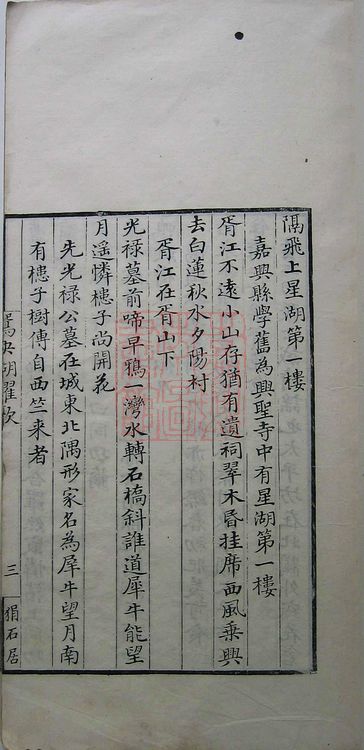 隅飛上星湖第一樓
嘉興縣學舊為興聖寺中有星湖第一樓
胥江不遠小山存猶有遺祠翠木昏挂席西風乗興
去白蓮秋水夕陽村
胥江在胥山下
光祿墓前啼早鴉一灣水轉石橋斜誰道犀牛能望
月遥憐櫘子尚開花
先光祿公墓在城東北隅形家名為犀牛望月南
有櫘子樹傳自西竺来者
鴛央湖櫂歌
三
狷石居